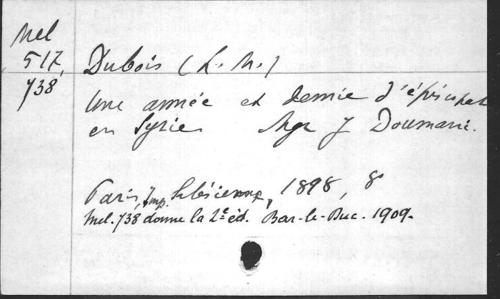 Mel
517,
738
Dubois (L. M.)
Une année et demie d'épiscopat
en Syrie. Mgr J Doumani.
Paris, Imp. Salésienne, 1898, 8°
Mel. 738 donne la 2e éd. Bar-le-Duc. 1909.